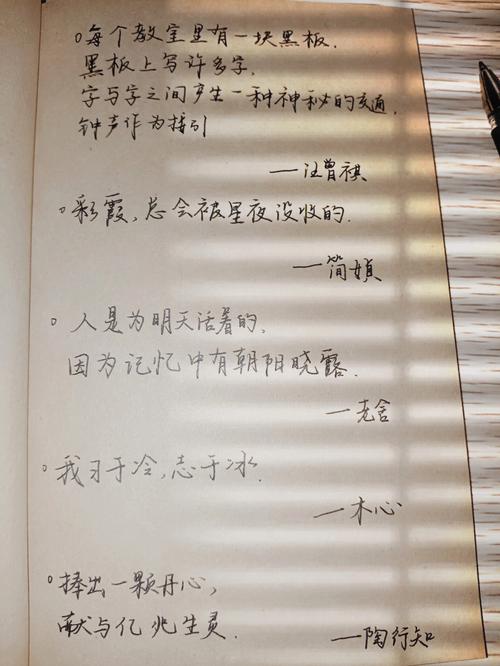 每个教室里有一块黑板.
黑板上写许多字,
字与字之间产生一种神秘的交通,
钟声作为接引
—汪曾祺
彩霞,总会被星夜没收的.
—简媜
人是为明天活着的,
因为记忆中有朝阳晓露.
—老舍
我习于冷,志于冰.
—木心
捧出一颗丹心,
献与亿兆生灵.
—陶行知